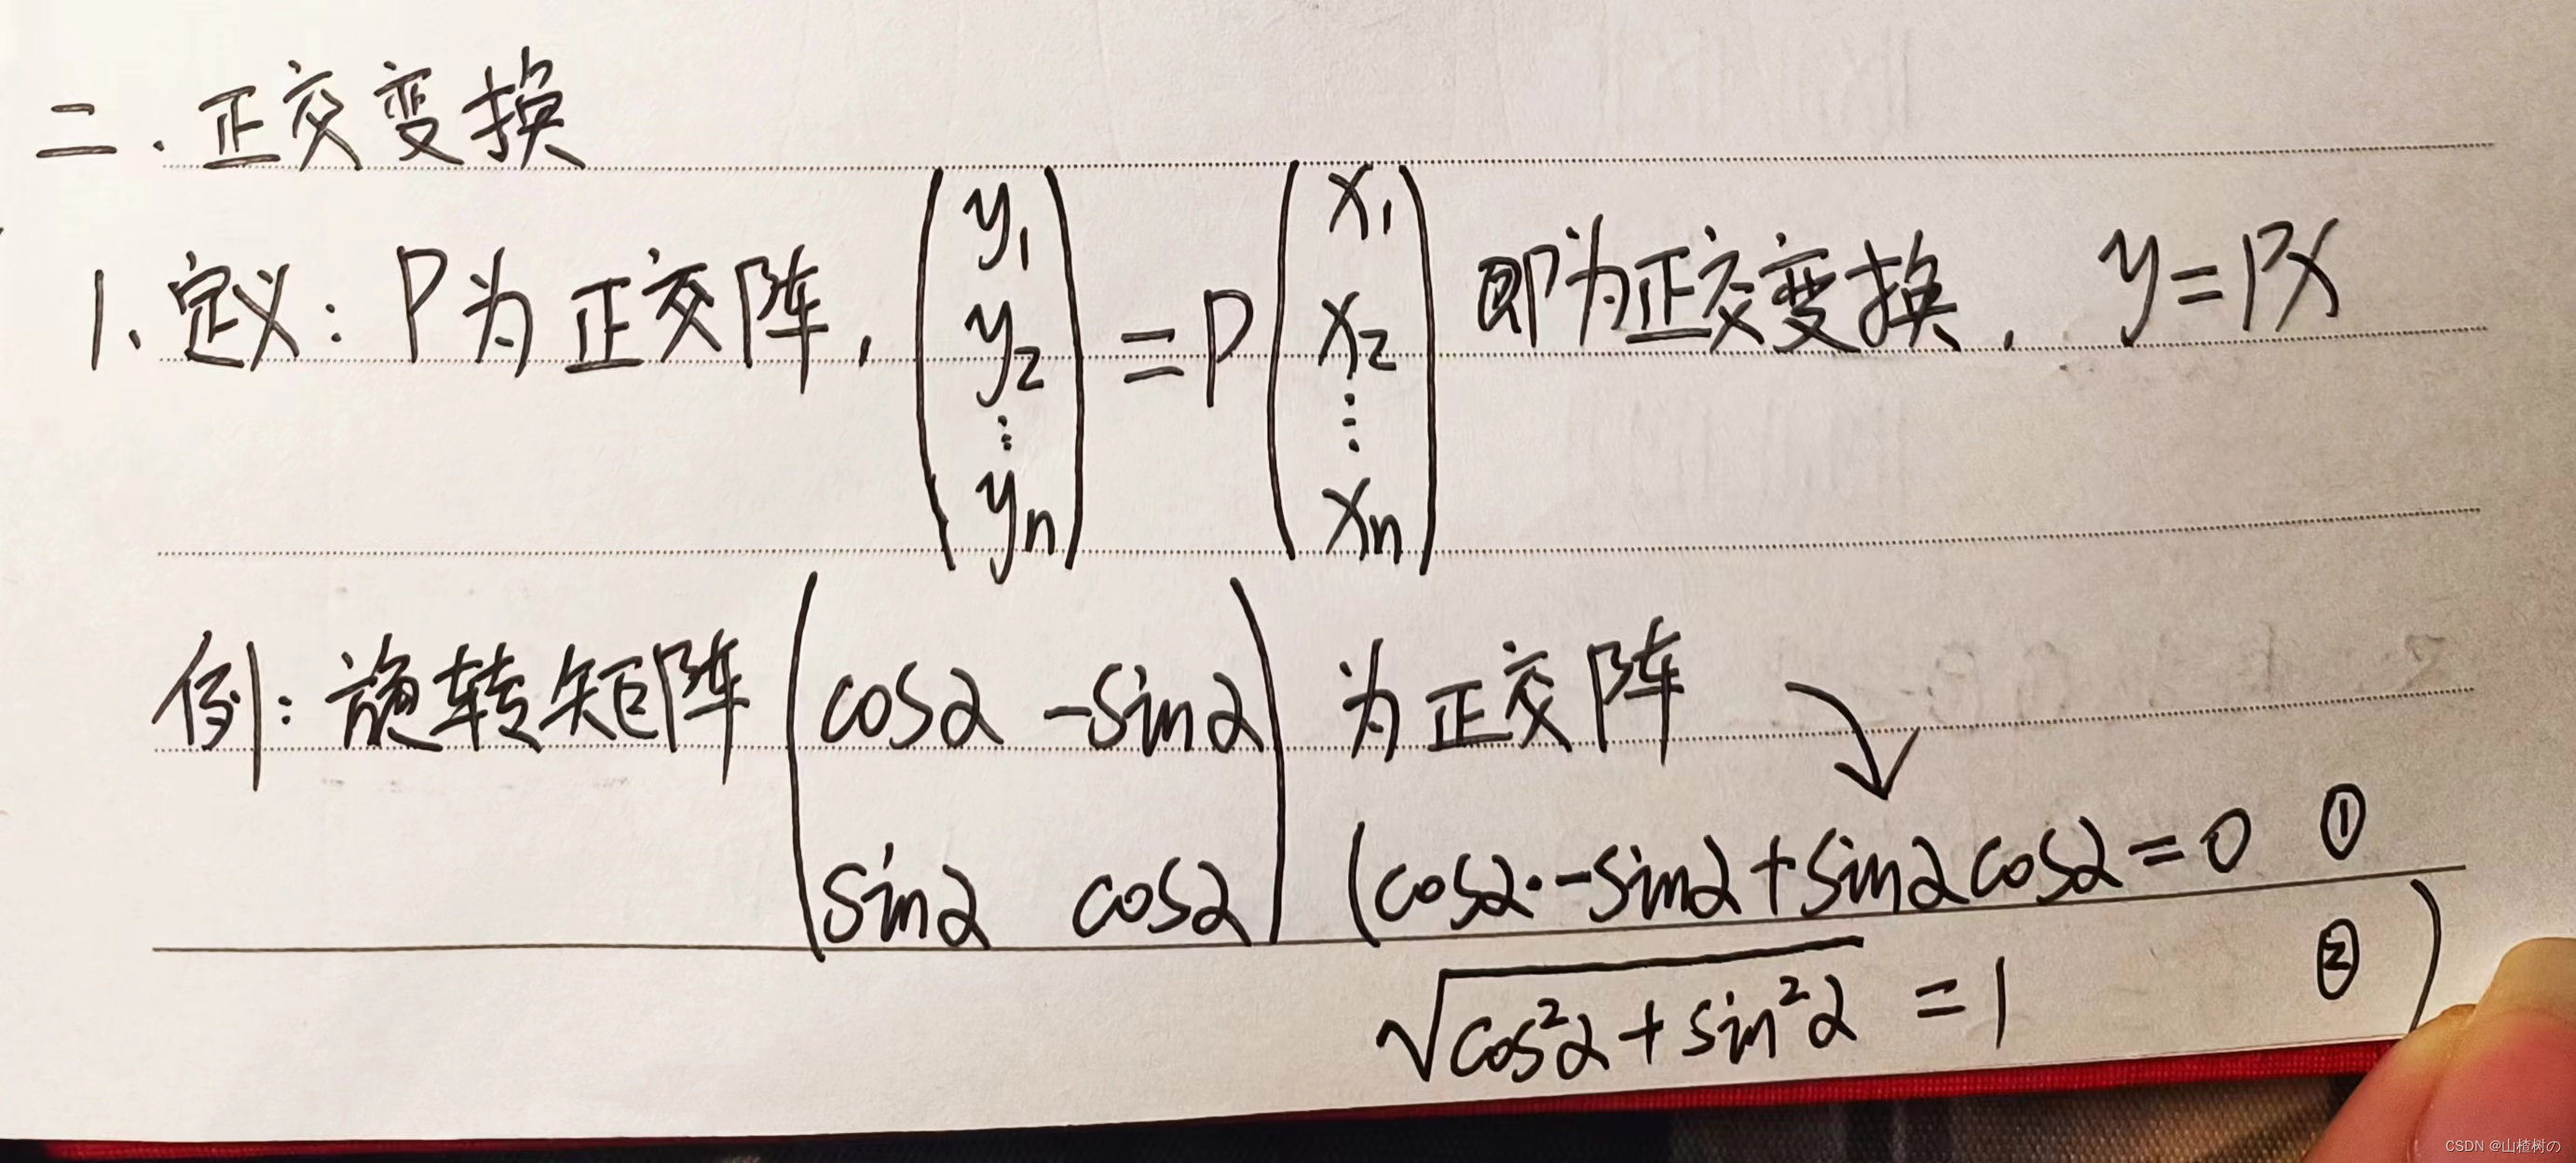 二.正交变换
1.定义:P为正交阵,(y₁ y₂ ⋮ yₙ)=P(x₁ x₂ ⋮ xₙ)即为正交变换,y=Px
例:旋转矩阵(cosα -sinα
sinα cosα)为正交阵
(cosα·-sinα+sinαcosα=0 ①
√cos²α+sin²α=1 ②)
CSDN @山楂树の